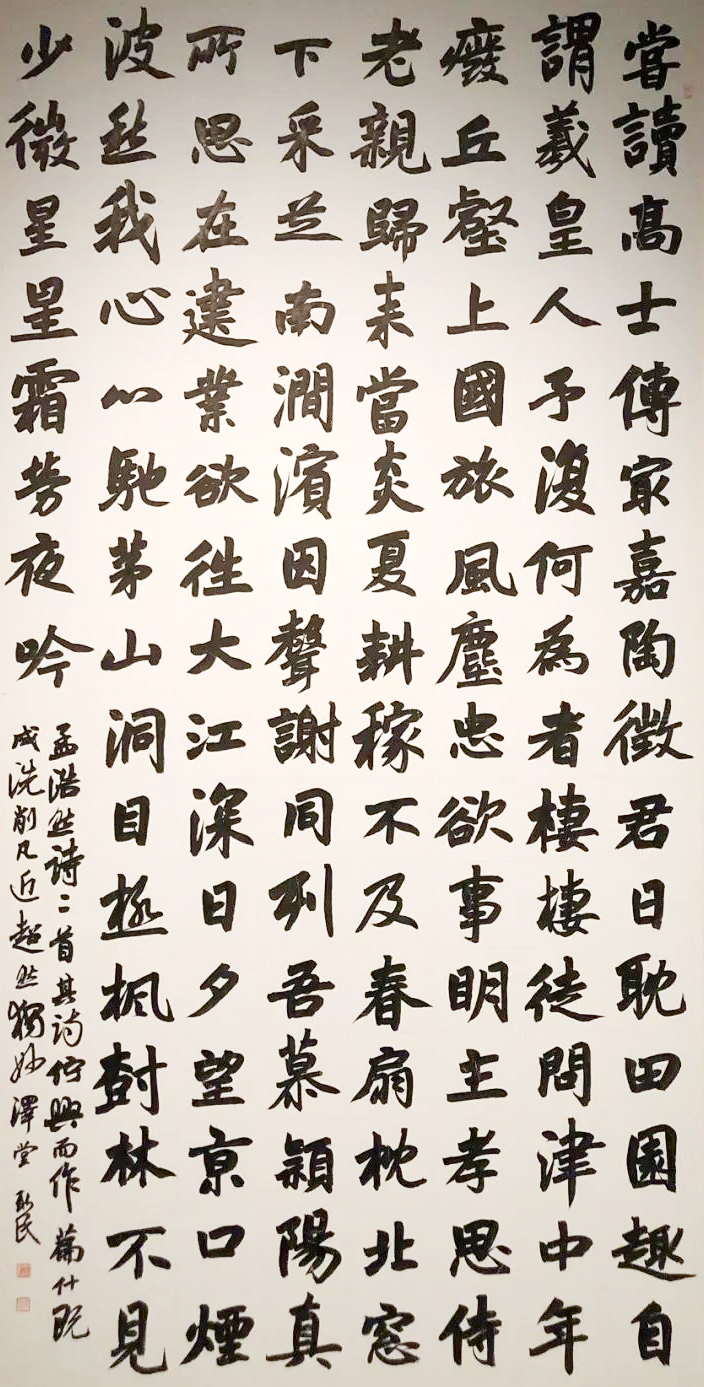 嘗讀高士傳家嘉陶徵君日耽田園趣自
謂羲皇人予復何為者棲棲徒問津中年
廢丘壑上國旅風塵忠欲事明主孝思侍
老親歸来當炎夏耕稼不及春扇枕北窓
下采芝南澗濱因聲謝同列吾慕潁陽真
所思在建業欲往大江深日夕望京口煙
波愁我心心馳茅山洞目極楓樹林不見
少微星星霜勞夜吟
孟浩然詩二首其詩佇興而作篇什既
成洗削凡近超然獨妙澤堂